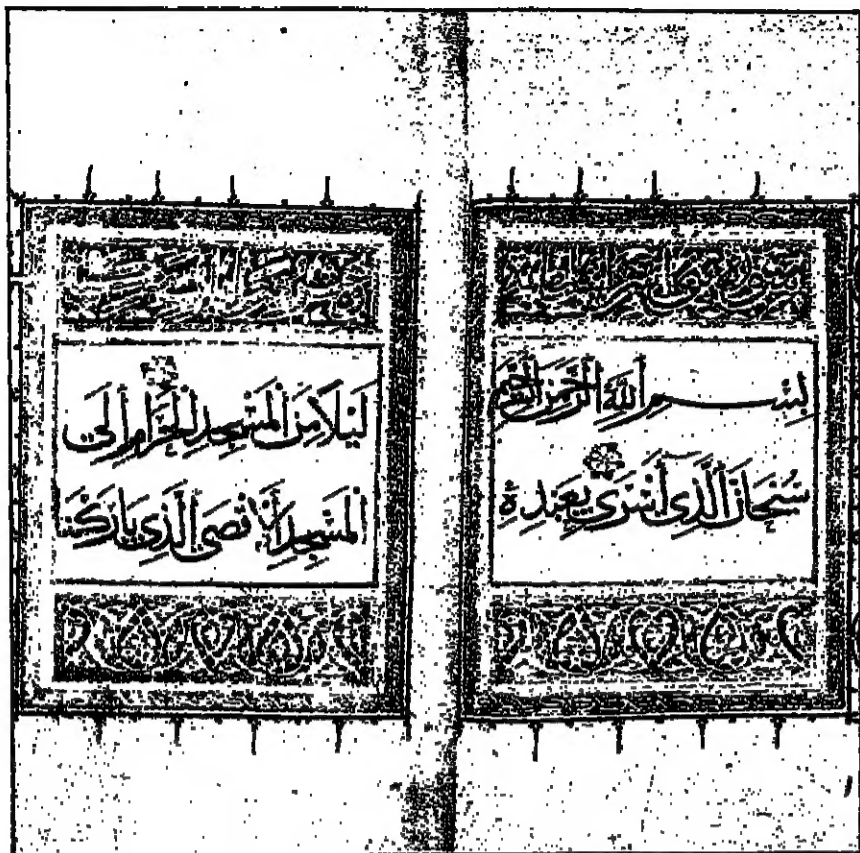 بِسْمِ اللَّهِ الرَّحْمَنِ الرَّحِيمِ
سُبْحَانَ الَّذِي أَسْرَى بِعَبْدِهِ
لَيْلًا مِنَ الْمَسْجِدِ الْحَرَامِ إِلَى
الْمَسْجِدِ الْأَقْصَى الَّذِي بَارَكْنَا